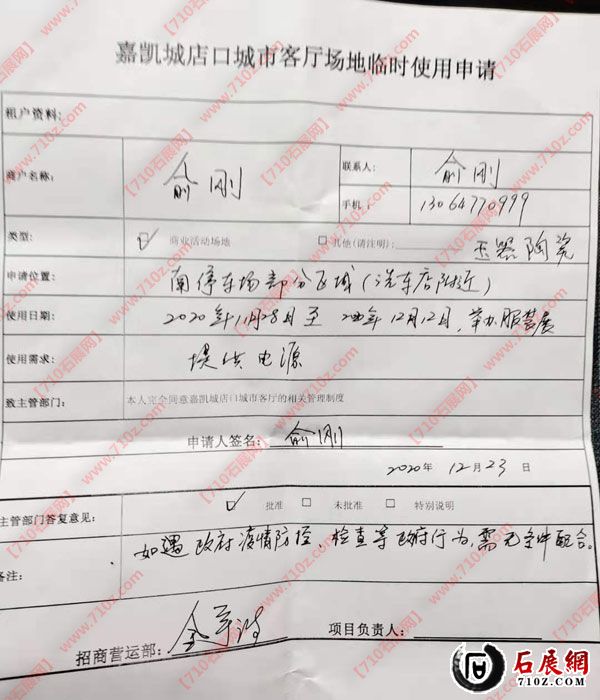 嘉凯城店口城市客厅场地临时使用申请
租户资料:
商户名称: 俞刚 联系人: 俞刚
手机: 13064770999
类型: ☑ 商业活动场地 □ 其他(请注明): 玉器陶瓷
申请位置: 南停车场部分区域(洗车店附近)
使用日期: 2020年11月28日至 2020年12月12日,举办服装展
使用需求: 提供电源
致主管部门: 本人完全同意嘉凯城店口城市客厅的相关管理制度
申请人签名: 俞刚
2020年 12月23日
主管部门答复意见: ☑ 批准 □ 未批准 □ 特别说明
如遇政府疫情防控、检查等政府行为,需无条件配合。
备注:
招商营运部: 项目负责人:
石展網
710z.com
【710石展网】
www.710z.com